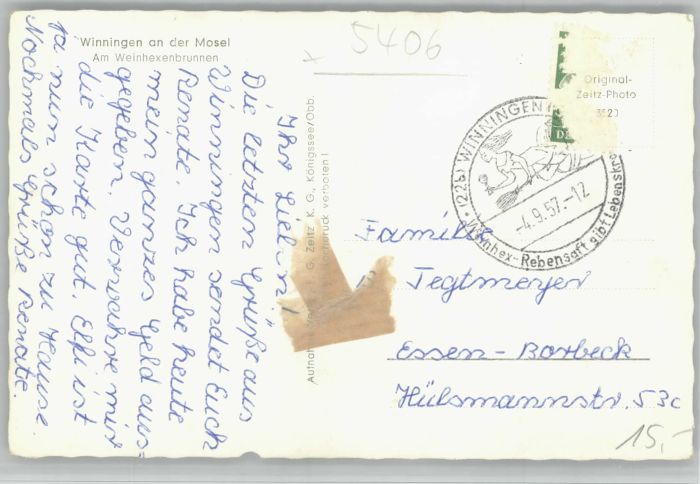 Winningen an der Mosel
Am Weinhexenbrunnen
5406
Original-
Zeitz-Photo
3520
(22b) WINNINGEN
-4.9.57.-12
Weinhex-Rebensaft gibt Lebenskra
Aufnahme G. Zeitz K. G., Königssee/Obb.
Nachdruck verboten!
Ihr Lieben!
Die letzten Grüße aus
Winningen sendet Euch
Renate. Ich habe heute
mein ganzes Geld aus=
gegeben. Verwahre mir
die Karte gut. Elfi ist
ja nun schon zu Hause.
Nochmals Grüße Renate.
Familie
Tegtmeyer
Essen-Borbeck
Hülsmannstr. 53c
15,-